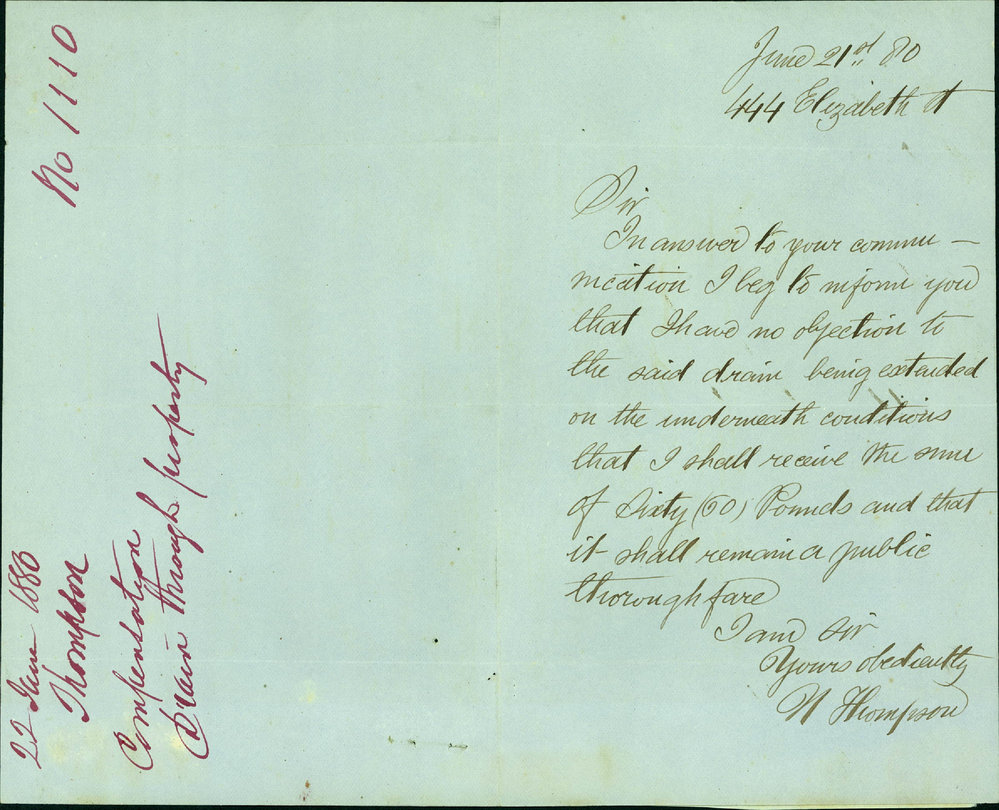 No 1110
22 June 1880
Thompson
Compensation
Drain through property
June 21st 80
444 Elizabeth St
Sir
In answer to your commu –
nication I beg to inform you
that I have no objection to
the said drain being extended
on the underneath conditions
that I shall receive the sum
of Sixty (60) Pounds and that
it shall remain a public
thoroughfare
I am Sir
Yours obediently
N Thompson